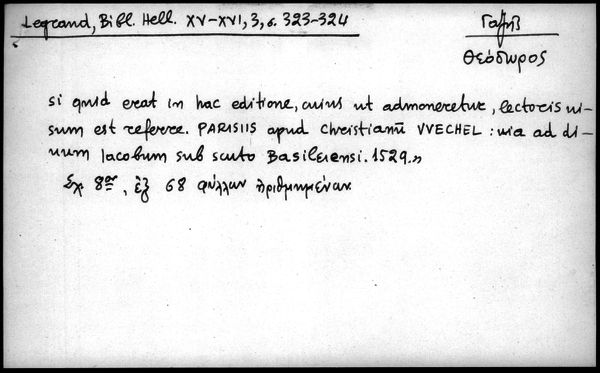 Legrand, Bibl. Hell. XV-XVI, 3, σ. 323-324
Γαζῆς
Θεόδωρος
si quid erat in hac editione, cuius ut admoneretur, lectoris ui-
sum est referre. PARISIIS apud Christianū VVECHEL: uia ad di-
uum Iacobum sub scuto Basileiensi. 1529.»
Σχ. 8ον, ἐξ 68 φύλλων ἀριθμημένων